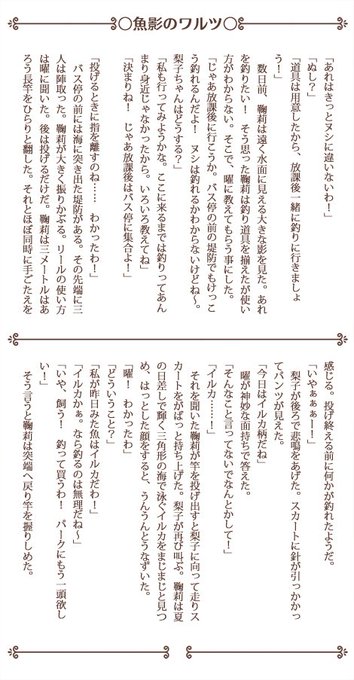 〇魚影のワルツ〇
「あれはきっとヌシに違いないわ！」
「ぬし？」
「道具は用意したから、放課後一緒に釣りに行きましょ
う！」
　数日前、鞠莉は遠く水面に見える大きな影を見た。あれ
を釣りたい！　そう思った鞠莉は釣り道具を揃えたが使い
方がわからない。そこで、曜に教えてもらう事にした。
「じゃあ放課後に行こうか。バス停の前の堤防でもけっこ
う釣れるんだよ！　ヌシは釣れるかわからないけどね～。
梨子ちゃんはどうする？」
「私も行ってみようかな。ここに来るまでは釣りってあん
まり身近じゃなかったから。いろいろ教えてね」
「決まりね！　じゃあ放課後はバス停に集合よ！」
「投げるときに指を離すのね……　わかったわ！」
　バス停の前には海に突き出た堤防がある。その先端に三
人は陣取った。鞠莉が大きく振りかぶる。リールの使い方
は曜に聞いた。後は投げるだけだ。鞠莉は三メートルはあ
ろう長竿をひらりと翻した。それとほぼ同時に手ごたえを
感じる。投げ終える前に何かが釣れたようだ。
「いやぁぁぁー！」
　梨子が後ろで悲鳴をあげた。スカートに針が引っかかっ
てパンツが見えた。
「今日はイルカ柄だね」
　曜が神妙な面持ちで答えた。
「そんなこと言ってないでなんとかしてー」
「イルカ……！」
　それを聞いた鞠莉が竿を投げ出すと梨子に向って走りス
カートをがばっと持ち上げた。梨子が再び叫ぶ。鞠莉は夏
の日差しで輝く三角形の海で泳ぐイルカをまじまじと見つ
め、はっとした顔をすると、うんうんとうなずいた。
「曜！　わかったわ」
「どういうこと？」
「私が昨日みた魚はイルカだわ！」
「イルカかぁ。なら釣るのは無理だね～」
「いや、飼う！　釣って買うわ！　パークにもう一頭欲し
い！」
　そう言うと鞠莉は突端へ戻り竿を握りしめた。